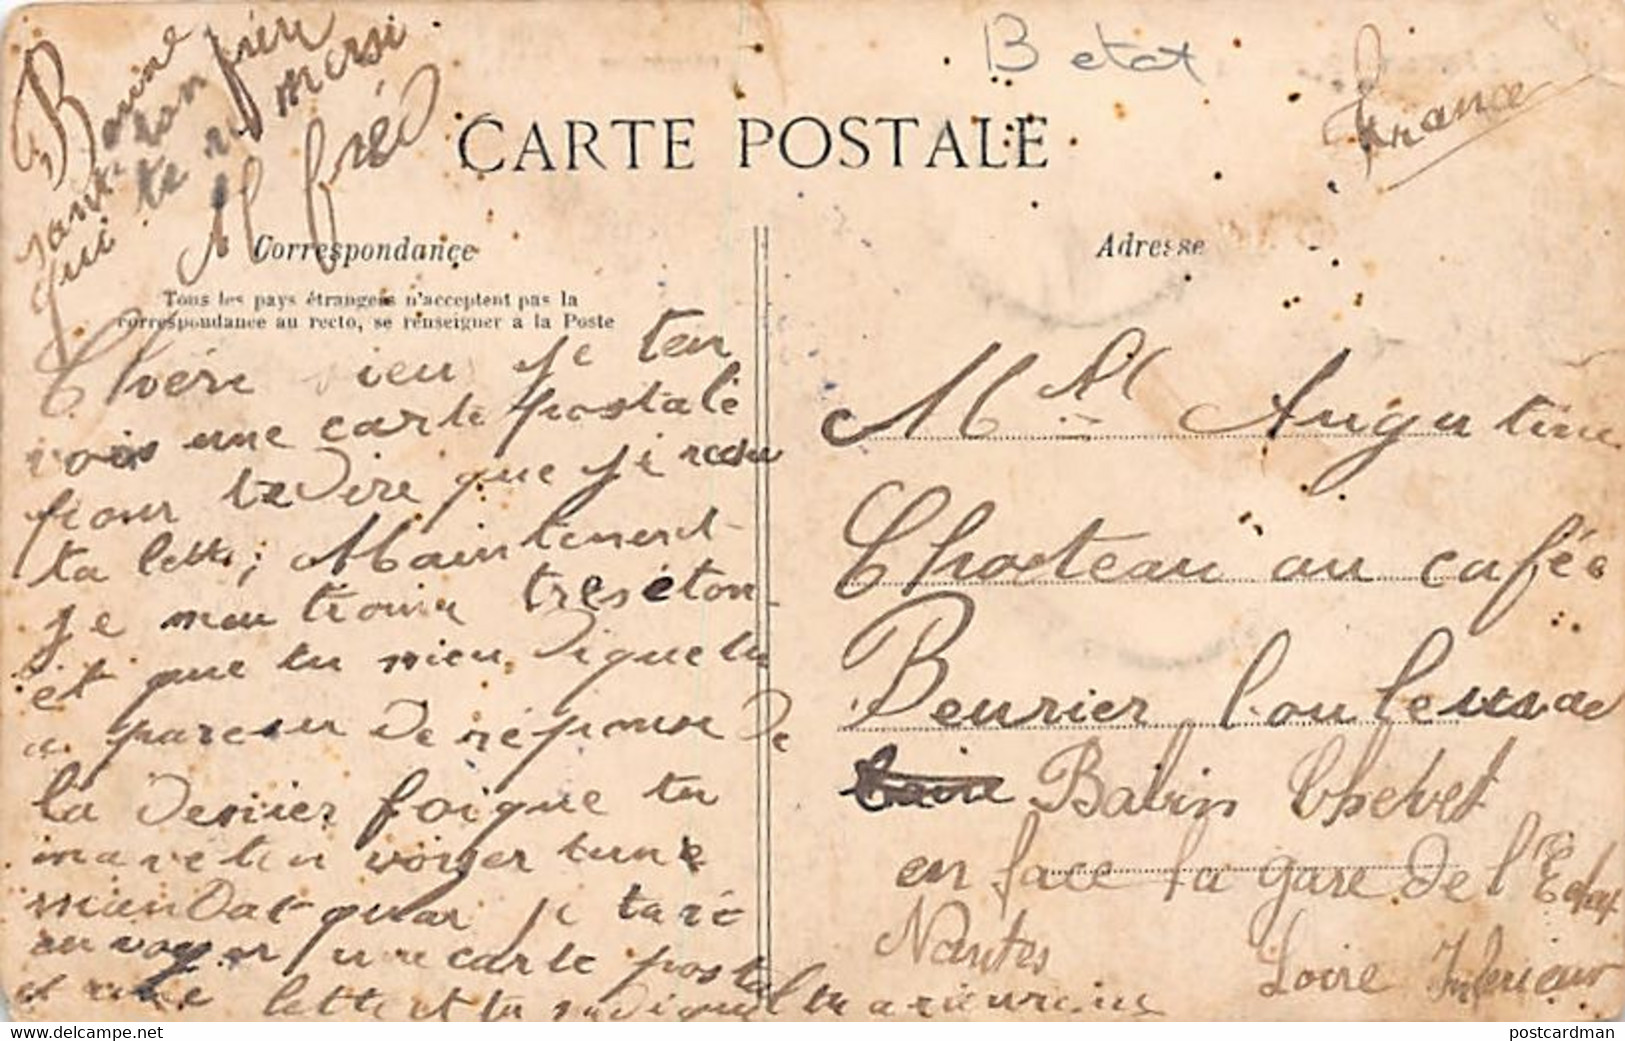 Bonne
santé ton frére
qui te re mersi
Alfréd
B etat
France
CARTE POSTALE
Correspondance
Adresse
Tous les pays étrangers n'acceptent pas la
correspondance au recto, se renseigner a la Poste
Chére vieu je ten
vois une carte postale
pour te dire que je resu
ta lettre; Maintenent
je men trouve tres éton
ét que tu mieu digue tu
a pareu de réponse de
la dernier foigue tu
mavétin voiyer tune
mandat quar je taré
en voyer une carte postal
et une lettre et tu me digue tu a rieureçue
M. Augustine
Chateau au cafée
Beurier bouleverde
Balvin Chevet
en face la gare de l'Etat
Nantes Loire Inferieur
postcardman
www.delcampe.net